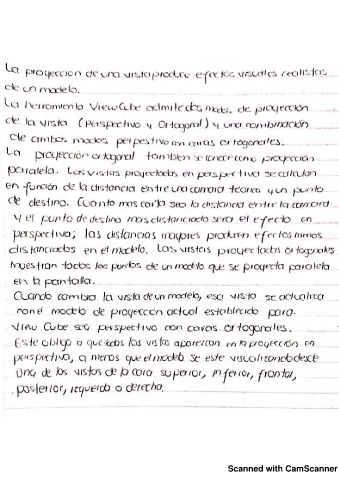 La proyeccion de una vista produce efectos visuales realistas
de un modelo.
La herramienta ViewCube admite dos modos de proyección
de la vista (Perspectivo y Ortogonal) y una combinación
de ambos modos perpestivo en caras ortogonales.
La proyección ortogonal tambien se conoce como proyección
paralela. Las vistas proyectadas en perspectiva se calculan
en función de la distancia entre una camara teorica y un punto
de destino. Cuanto mas corta sea la distancia entre la camara
y el punto de destino mas distanciado sera el efecto en
perspectiva; las distancias mayores producen efectos menos
distanciados en el modelo. Las vistas proyectadas ortogonales
muestran todos los puntos de un modelo que se proyecta paralela
en la pantalla.
Cuando cambia la vista de un modelo, esa vista se actualiza
con el modelo de proyección actual establecido para.
View Cube sea perspectivo con caras ortogonales.
Este obliga a que todas las vistas aparezcan en la proyección en
perspectiva, a menos que el modelo se este visualizando desde
una de las vistas de la cara superior, inferior, frontal,
posterior, izquerda o derecha.
Scanned with CamScanner